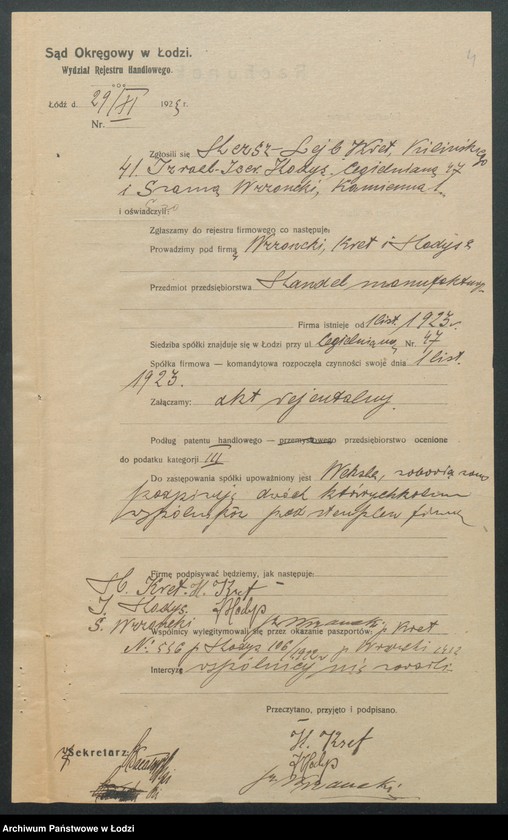 4
Sąd Okręgowy w Łodzi.
Wydział Rejestru Handlowego.
Łódź d. 29/XI 1923 r.
Nr.
Zgłosili się Hersz-Lejb Kret, Kilińskiego
41, Izrael-Icer Hodys, Cegielniana 47
i Szama Wrzoncki, Kamienna 1
i oświadczyli:
Zgłaszamy do rejestru firmowego co następuje:
Prowadzimy pod firmą Wrzoncki, Kret i Hodys
Przedmiot przedsiębiorstwa Handel manufaktury
Firma istnieje od 1 list. 1923 r.
Siedziba spółki znajduje się w Łodzi przy ul. Cegielnianą Nr. 47
Spółka firmowa — komandytowa rozpoczęła czynności swoje dnia 1 list.
1923.
Załączamy: akt rejentalny.
Podług patentu handlowego — przemysłowego przedsiębiorstwo ocenione
do podatku kategorji III
Do zastępowania spółki upoważniony jest Weksle,
podpisują dwóch którychkolwiek
wspólników pod stemplem firmy
Firmę podpisywać będziemy, jak następuje:
H. Kret - H. Kret
I. Hodys
S. Wrzoncki
Wspólnicy wylegitymowali się przez okazanie paszportów: p. Kret
№ 556 p. Hodys 106/ p.
Intercyzę wspólnicy nie zawarli.
Przeczytano, przyjęto i podpisano.
H. Kret
Sekretarz
Archiwum Państwowe w Łodzi